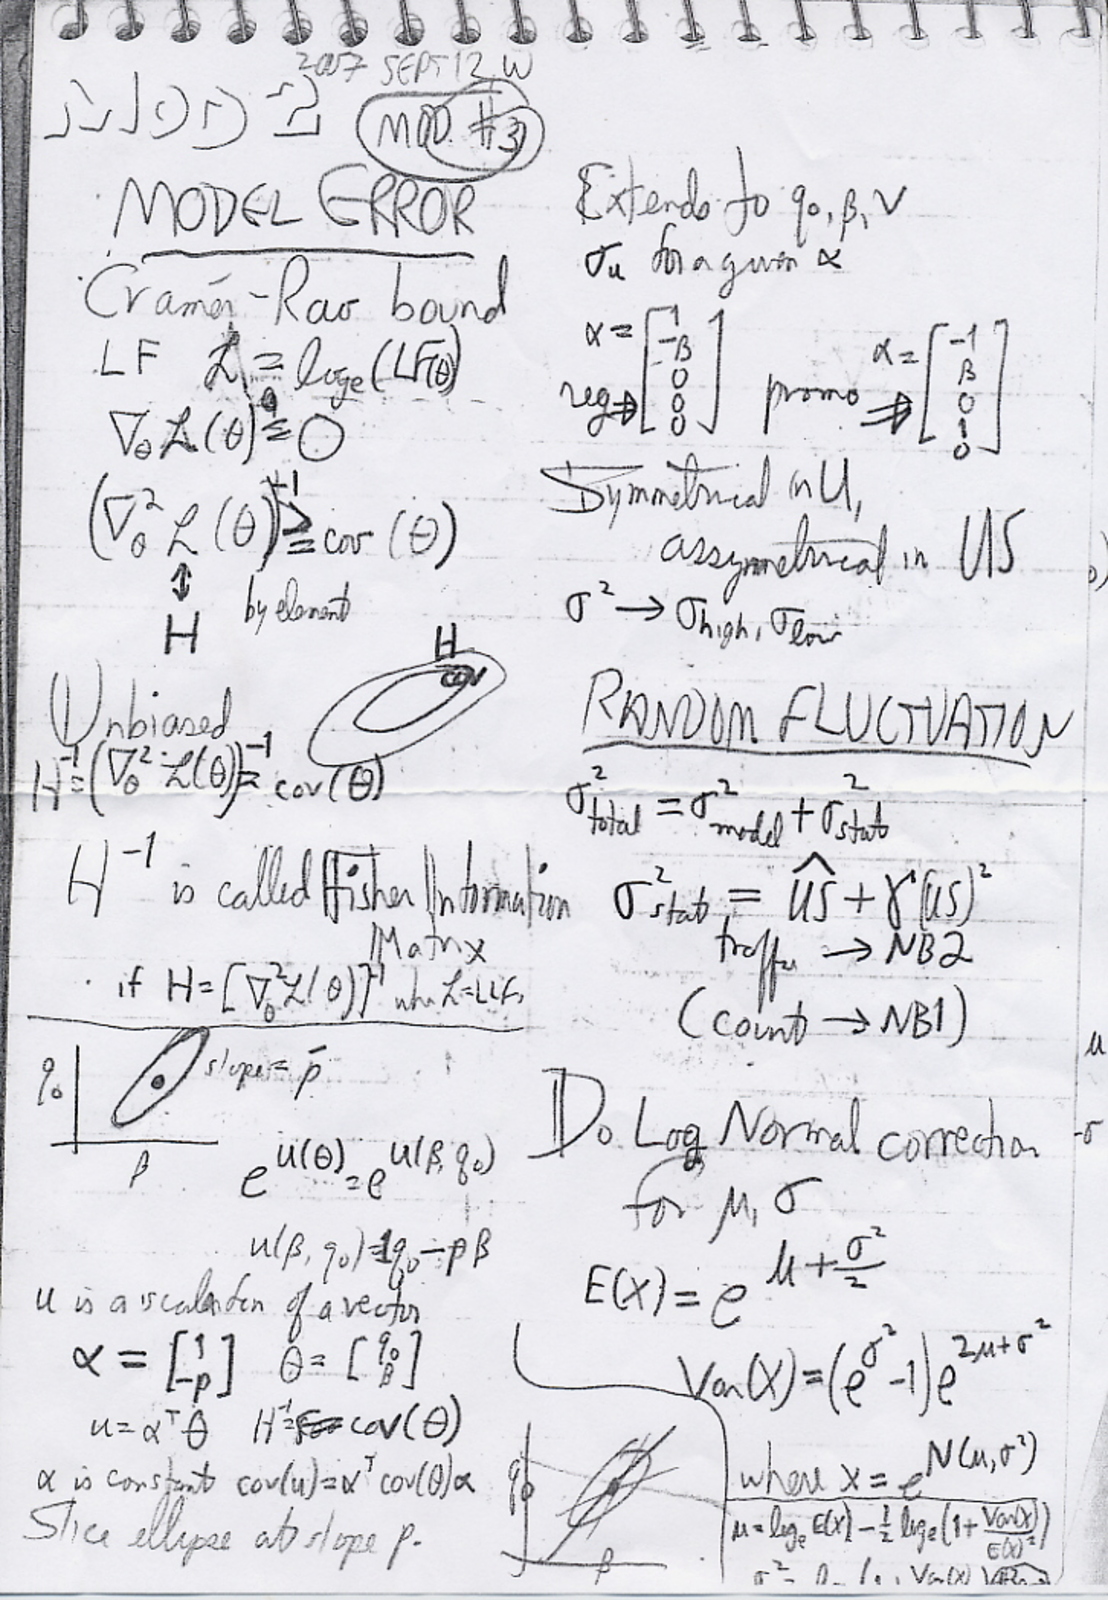 2007 SEPT 12, W
MOD. #3
MODEL ERROR
Cramér-Rao bound
LF ℒ = loge(LF(θ))
∇θ ℒ(θ) = 0
(∇θ² ℒ(θ))⁻¹ ≥ cov(θ)
↕
H
by element
H
cov
Unbiased
H⁻¹=(∇θ² ℒ(θ))⁻¹= cov(θ)
H⁻¹ is called Fisher Information
Matrix
if H=[∇θ²ℒ(θ)]⁻¹ when ℒ=LLF,
q₀
slope = p̄
β
e^u(θ) = e^u(β, q₀)
u(β, q₀)=1q₀-pβ
u is a scalar fcn of a vector
α = [1 -p] θ = [q₀ β]
u = αᵀθ H⁻¹= cov(θ)
α is constant cov(u)=αᵀ cov(θ)α
Slice ellipse at slope p.
Extends to q₀, β, v
σu for a given α
α = [1 -β 0 0 0] α = [-1 β 0 1 0]
reg ⇒ promo ⇒
Symmetrical in U,
assymetrical in US
σ² → σhigh, σlow
RANDOM FLUCTUATION
σ²total = σ²model + σ²stat
σ²stat = ûs + γ(us)²
traffic → NB2
(count → NB1)
Do Log Normal correction
for μ, σ
E(X) = e^(μ+σ²/2)
Var(X)=(e^σ²-1)e^(2μ+σ²)
q₀
β
where x = e^N(μ,σ²)
μ=loge E(X) - ½ loge(1+Var(X)/E(X)²)